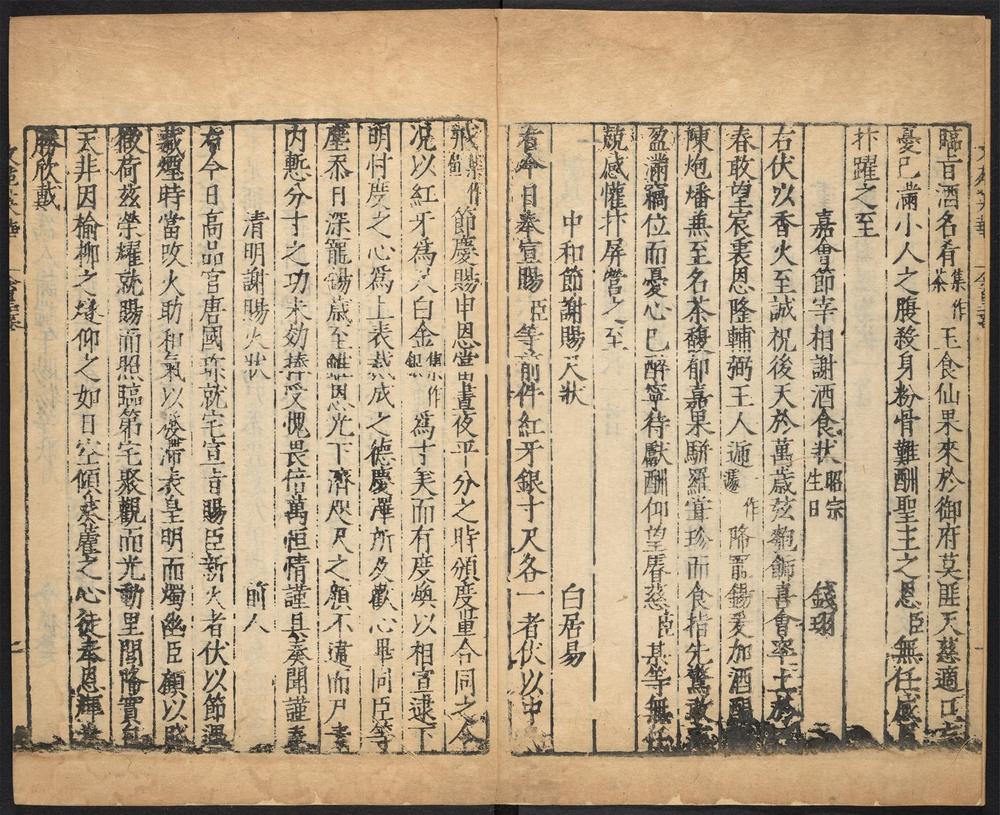 臨旨酒名肴集作茶玉食仙果來於御府莫匪天慈適口
憂已滿小人之腹殺身粉骨難酬聖主之恩臣無任感
抃躍之至
嘉會節宰相謝酒食狀昭宗生日 錢珝
右伏以香火至誠祝後天於萬歲弦匏飾喜會率土於
春敢望宸衷恩隆輔弼王人遞作降寵錫爰加酒醴
陳炮燔兼至名茶馥郁嘉果駢羅葺珍而食指先驚
盈滿竊位而憂心已醉寧待獻酬仰望眷慈臣某等無任
兢感懽抃屏營之至
中和節謝賜尺狀 白居易
右今日奉宣賜臣等前件紅牙銀寸尺各一者伏以中
和集作節慶賜申恩當晝夜平分之時頒度量合同之令
况以紅牙爲尺白金集作銀爲寸美而有度煥以相宣逮下
明忖度之心爲上表裁成之德慶澤所及歡心畢同臣等
塵忝日深寵錫歲至雖恩光下濟咫尺之顏不違而尸素
内慙分寸之功未効捧受愧畏倍萬恒情謹具奏聞謹奏
清明謝賜火狀 前人
右今日高品官唐國珎就宅宣旨賜臣新火者伏以節過
藏煙時當改火助和氣以發滯表皇明而燭幽臣顧以賤
微荷兹榮耀就賜而照臨第宅聚觀而光動里閭降實
天非因榆柳之燧仰之如日空傾葵藿之心徒奉恩輝
勝欣戴